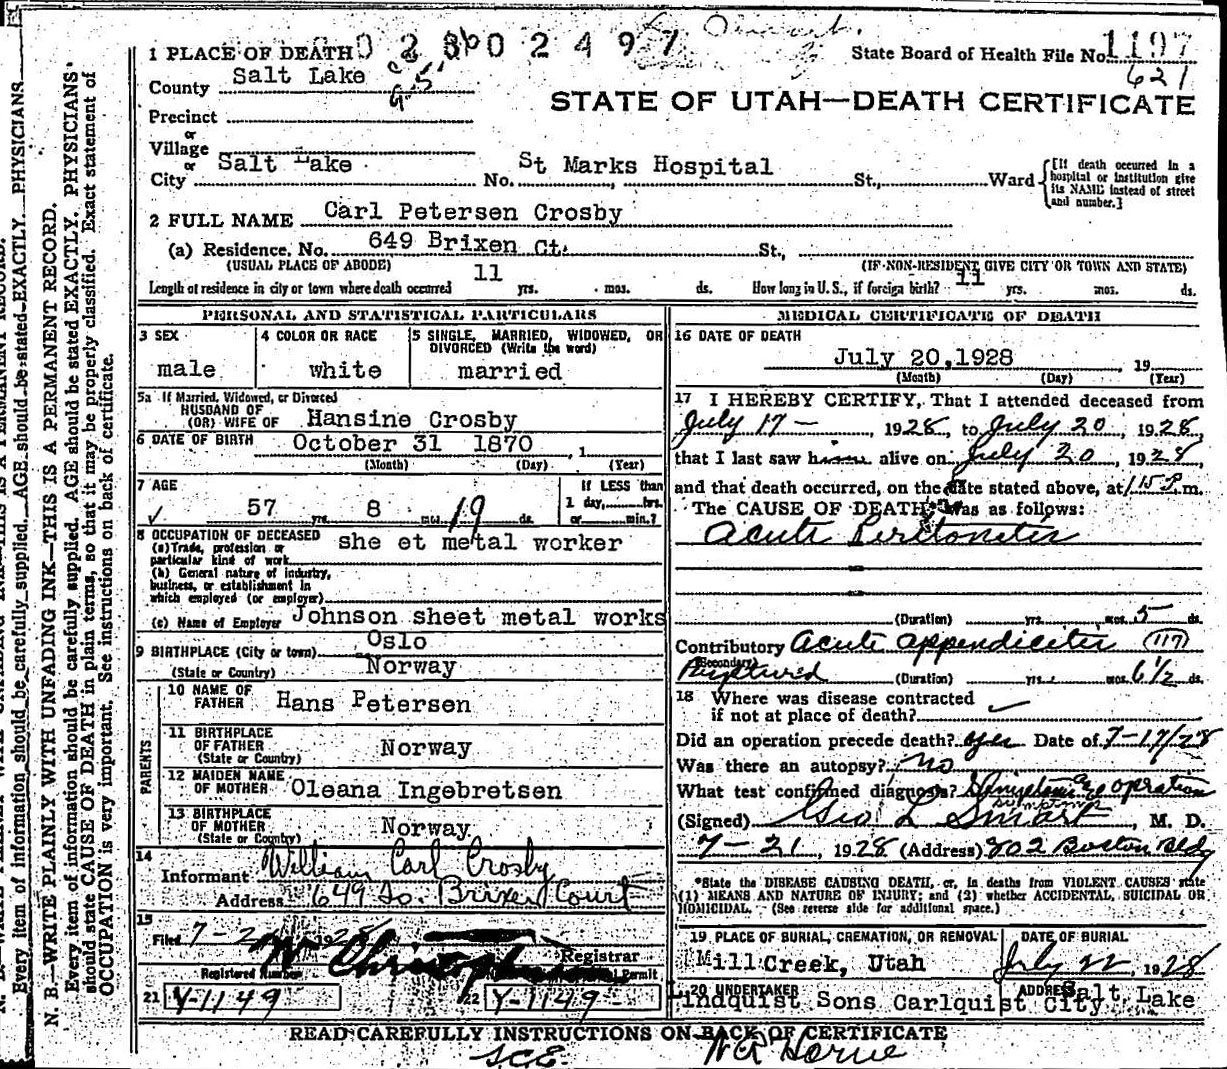 1 PLACE OF DEATH 0 2 8 0 2 4 9 7
State Board of Health File No. 1197
621
County Salt Lake
STATE OF UTAH—DEATH CERTIFICATE
Precinct
or
Village
or
City Salt Lake No. St Marks Hospital St., Ward
[If death occurred in a hospital or institution give its NAME instead of street and number.]
2 FULL NAME Carl Petersen Crosby
(a) Residence, No. 649 Brixen Ct. St.,
(USUAL PLACE OF ABODE) (IF NON-RESIDENT GIVE CITY OR TOWN AND STATE)
Length of residence in city or town where death occurred 11 yrs. mos. ds. How long in U.S., if foreign birth? 11 yrs. mos. ds.
PERSONAL AND STATISTICAL PARTICULARS
3 SEX male
4 COLOR OR RACE white
5 SINGLE, MARRIED, WIDOWED, OR DIVORCED (Write the word) married
5a If Married, Widowed, or Divorced
HUSBAND OF
(OR) WIFE OF Hansine Crosby
6 DATE OF BIRTH October 31 1870 , 1
(Month) (Day) (Year)
7 AGE 57 yrs. 8 mos. 19 ds.
If LESS than 1 day, hrs. or min.?
8 OCCUPATION OF DECEASED
(a) Trade, profession or particular kind of work she et metal worker
(b) General nature of industry, business, or establishment in which employed (or employer)
(c) Name of Employer Johnson sheet metal works
9 BIRTHPLACE (City or town) Oslo
(State or Country) Norway
PARENTS
10 NAME OF FATHER Hans Petersen
11 BIRTHPLACE OF FATHER (State or Country) Norway
12 MAIDEN NAME OF MOTHER Oleana Ingebretsen
13 BIRTHPLACE OF MOTHER (State or Country) Norway
14
Informant William Carl Crosby
Address 649 So. Brixen Court
15
Filed 7-2 1928
Registrar
Registered Number Permit
21 Y-1149 22 Y-1149-
MEDICAL CERTIFICATE OF DEATH
16 DATE OF DEATH
July 20,1928 , 19
(Month) (Day) (Year)
17 I HEREBY CERTIFY, That I attended deceased from
July 17 - , 1928, to July 20, 1928,
that I last saw him alive on July 20, 1928,
and that death occurred, on the date stated above, at 1 15 P. m.
The CAUSE OF DEATH* was as follows:
Acute Peritonitis
(Duration) yrs. mos. 5 ds.
Contributory Acute appendicitis (117)
(Secondary) Ruptured (Duration) yrs. mos. 6 1/2 ds.
18 Where was disease contracted
if not at place of death?
Did an operation precede death? yes Date of 7-17/28
Was there an autopsy? no
What test confirmed diagnosis? Symptoms & operation
symptoms
(Signed) Geo L Smart, M. D.
7-21, 1928 (Address) 802 Boston Bldg
*State the DISEASE CAUSING DEATH, or, in deaths from VIOLENT CAUSES state
(1) MEANS AND NATURE OF INJURY; and (2) whether ACCIDENTAL, SUICIDAL OR
HOMICIDAL. (See reverse side for additional space.)
19 PLACE OF BURIAL, CREMATION, OR REMOVAL Mill Creek, Utah
DATE OF BURIAL July 22, 1928
20 UNDERTAKER Lindquist Sons Carlquist
ADDRESS Salt Lake City
READ CAREFULLY INSTRUCTIONS ON BACK OF CERTIFICATE
S.C.E. W R Horne
N. B.—WRITE PLAINLY WITH UNFADING INK—THIS IS A PERMANENT RECORD.
Every item of information should be carefully supplied. AGE should be stated EXACTLY. PHYSICIANS
should state CAUSE OF DEATH in plain terms, so that it may be properly classified. Exact statement of
OCCUPATION is very important. See instructions on back of certificate.
Every item of information should be carefully supplied. AGE should be stated EXACTLY. PHYSICIANS